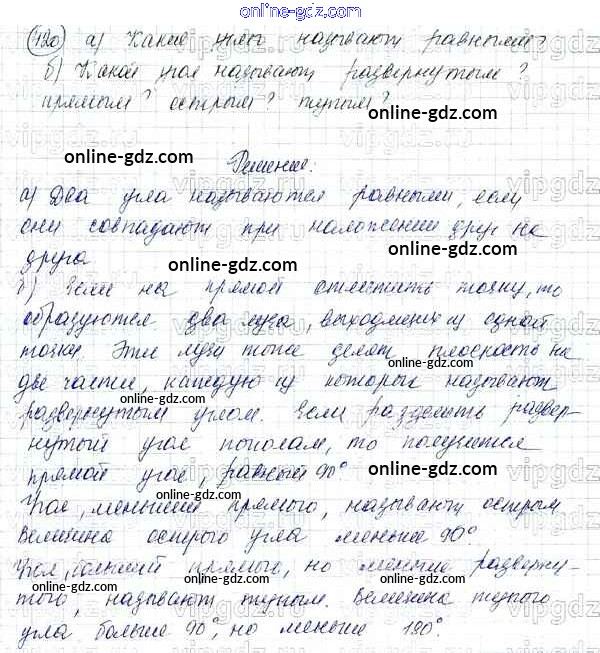 online-gdz.com
120) а) Какие углы называют равными?
б) Какой угол называют развернутым?
прямым? острым? тупым?
online-gdz.com
online-gdz.com
Решение:
а) Два угла называются равными, если
они совпадают при наложении друг на
друга
online-gdz.com
online-gdz.com
б) Если на прямой отметить точку, то
образуются два луча, выходящих из одной
точки. Эти лучи тоже делят плоскость на
online-gdz.com
две части, каждую из которых называют
развернутым углом. Если разделить развер-
нутый угол пополам, то получится
прямой угол, равный 90°
online-gdz.com
online-gdz.com
Угол, меньший прямого, называют острым
Величина острого угла меньше 90°
Угол, больший прямого, но меньше разверну-
online-gdz.com
того, называют тупым. Величина тупого
угла больше 90°, но меньше 180°.
online-gdz.com